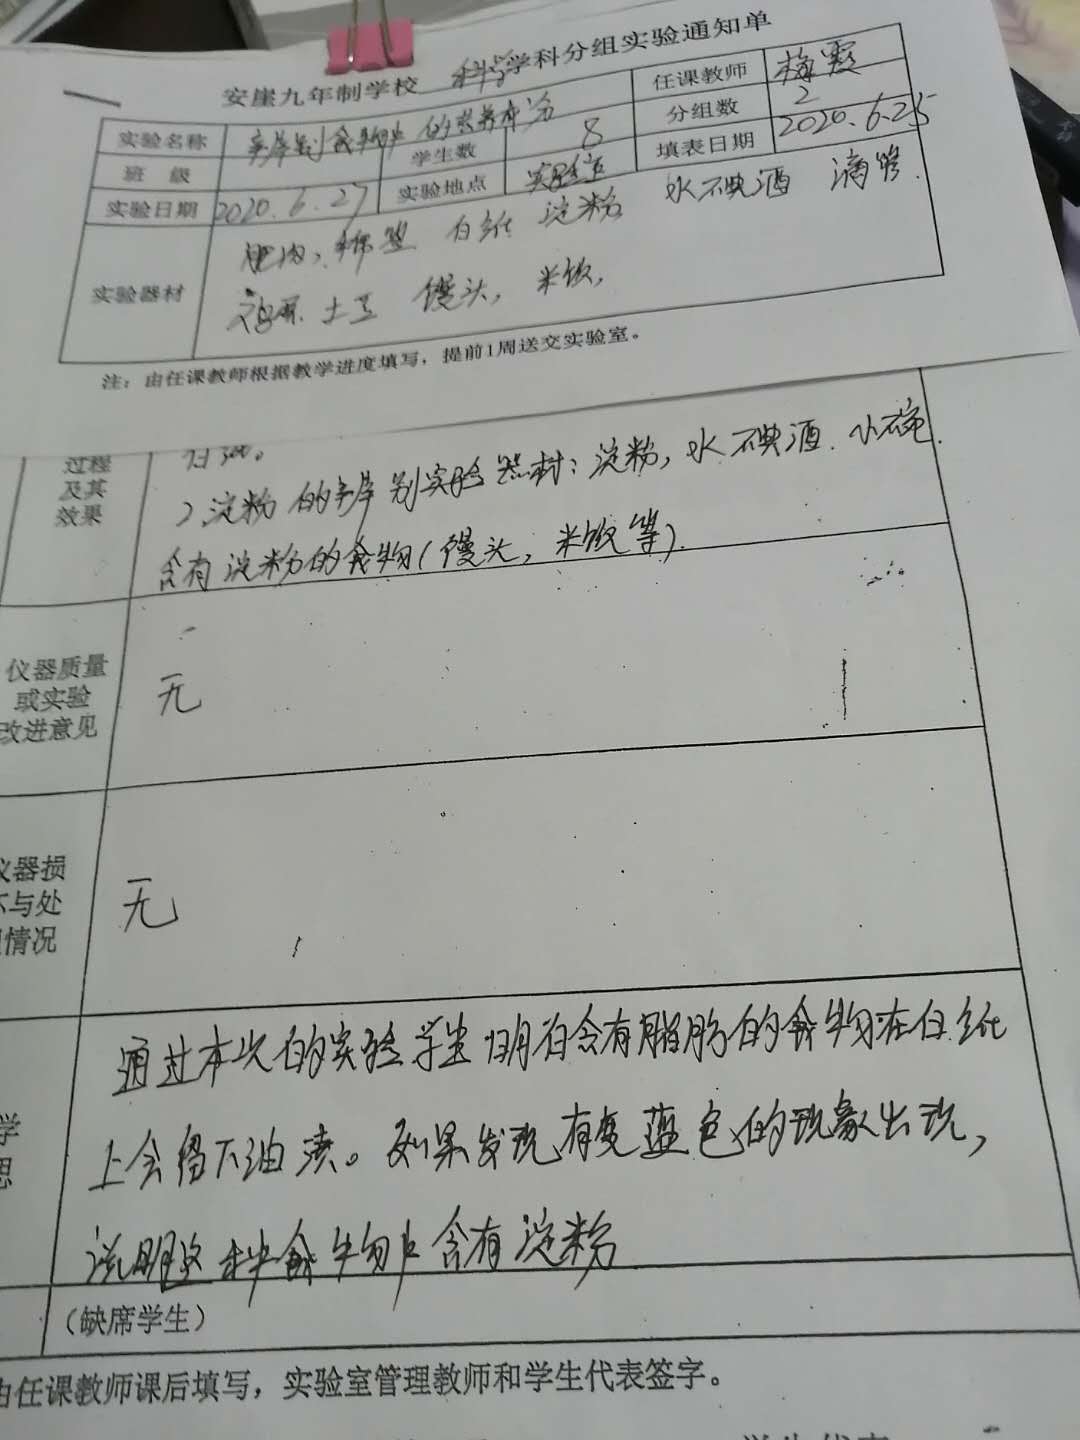 安崖九年制学校 科学学科分组实验通知单
实验名称 辨别食物中的营养成分 任课教师 梅霞
班 级 学生数 8 分组数 2
实验日期 2020.6.27 实验地点 实验室 填表日期 2020.6.25
实验器材 肥肉, 棉签 白纸 淀粉 水 碘酒 滴管.
土豆 馒头, 米饭,
注：由任课教师根据教学进度填写，提前1周送交实验室。
过程
及其
效果
2淀粉的辨别实验器材: 淀粉, 水 碘酒. 小碗.
含有淀粉的食物(馒头, 米饭等).
仪器质量
或实验
改进意见
无
仪器损
与处
情况
无
通过本次的实验学生明白含有脂肪的食物在白纸
上会留下油渍。如果发现有变蓝色的现象出现,
说明这种食物中含有淀粉
学
思
(缺席学生)
由任课教师课后填写，实验室管理教师和学生代表签字。